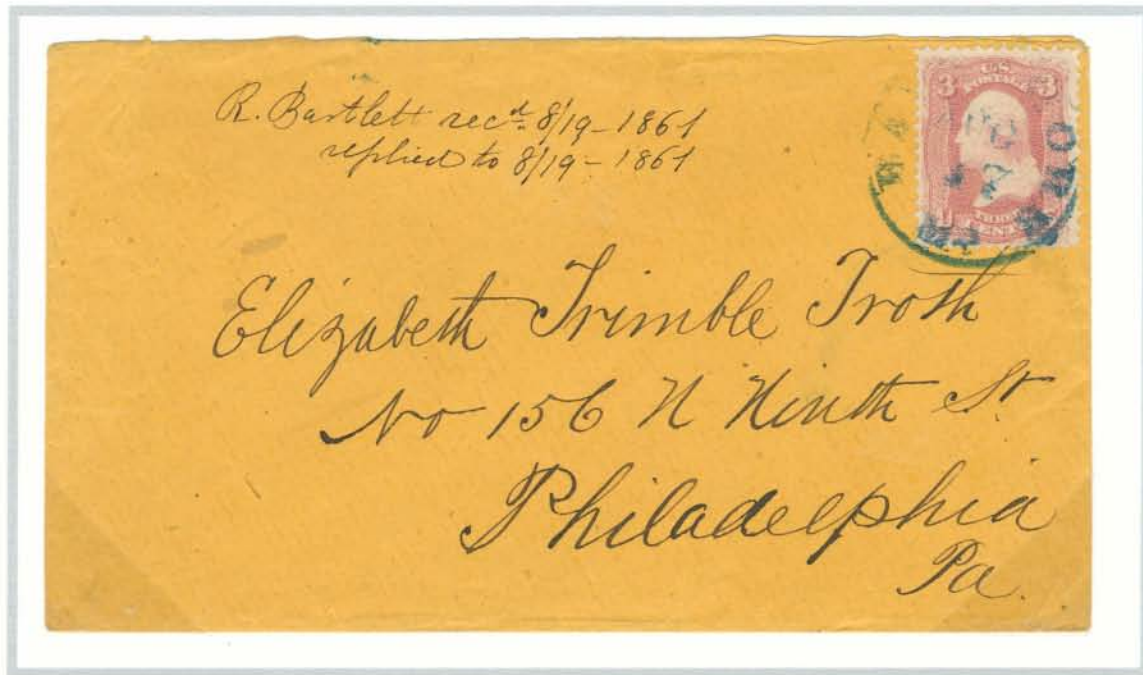 R. Bartlett recd 8/19-1861
replied to 8/19-1861
U.S.
POSTAGE
3 3
THREE
CENTS
Elizabeth Trimble Troth
No 156 N Ninth St
Philadelphia
Pa.